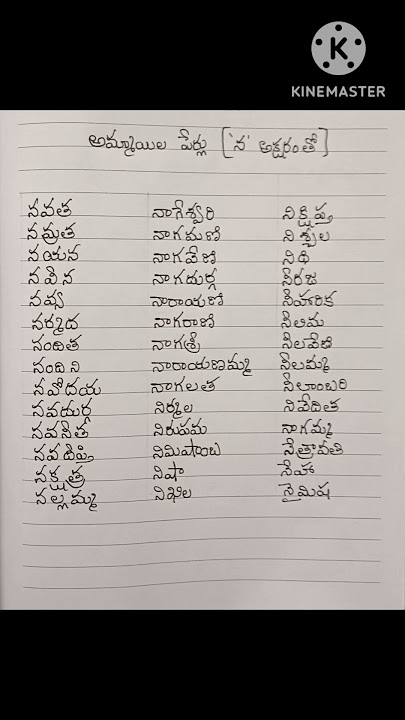 KINEMASTER
అమ్మాయిల పేర్లు ['న' అక్షరంతో]
నవత నాగేశ్వరి నిక్షిప్త
నమ్రత నాగమణి నిశ్చల
నయన నాగవేణి నిధి
నవీన నాగదుర్గ నీరజ
నవ్య నారాయణి నీహారిక
నర్మద నాగరాణి నీలిమ
నందిత నాగశ్రీ నీలవేణి
నందిని నారాయణమ్మ నీలమ్మ
నవోదయ నాగలత నీలాంబరి
నవదుర్గ నిర్మల నివేదిత
నవనీత నిరుపమ నాగమ్మ
నవదీప్తి నిమిషాంబ నేత్రావతి
నక్షత్ర నిషా నేహా
నల్లమ్మ నిఖిల నైమిష